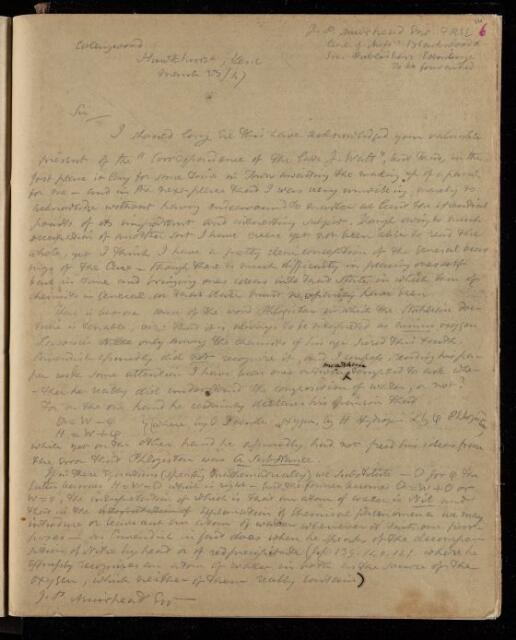 J. P. Muirhead Esqr
6
Care of Messrs Blackwood
Publishers Edinburgh
To be forwarded
Collingwood
Hawkhurst, Kent
March 23/47
Sir
I should long ere this have acknowledged your valuable
present of the "Correspondence of the late J. Watt", but this, in the
first place it lay for some time in Town awaiting the making up of a parcel
for me – and in the next place that I was very unwilling, merely to
acknowledge without having endeavoured to master at least the essential
points of its important and interesting subject. Though owing to much
occupation of another sort I have even yet not been able to read the
whole, yet I think I have a pretty clear conception of the general bear
ings of the Case – though there is much difficulty in placing oneself
back in time and bringing ones ideas into that state in which those of
chemists in general on their ideas must necessarily have been
There is however a sense of the word Phlogiston in which the Stahlian doc-
trine is tenable, viz: that it is always to be interpreted as minus oxygen
Lavoisier alone only among the chemists of his age seized this truth.
Cavendish assuredly did not recognize it, and I confess, reading his pa-
per with some attention I have been over and over tempted to ask whe-
-ther he really did understand the composition of water, or not?
For on the one hand he certainly declares his opinion that
O = W – φ
H = W + φ
(where by O I denote Oxygen, by H Hydrogen & by φ Phlogiston)
while yet on the other hand he assuredly had not freed his ideas from
the error that Phlogiston was a Substance.
If in these equations (speaking Mathematically) we substitute – O for φ the
latter becomes H = W – O which is right – but the former becomes O = W + O or
W = 0, the interpretation of which is that an atom of water is Nil and
that in the explanation of chemical phenomena we may
introduce or leave out an atom of water whenever it suits our pur-
poses – as Cavendish in fact does when he speaks of the decompo-
sition of Nitre by heat or of red precipitate (pp 139, 140, 141) where he
expressly recognizes an atom of water in both as the source of the
oxygen, which neither of them really contains)
J. P. Muirhead Esqr